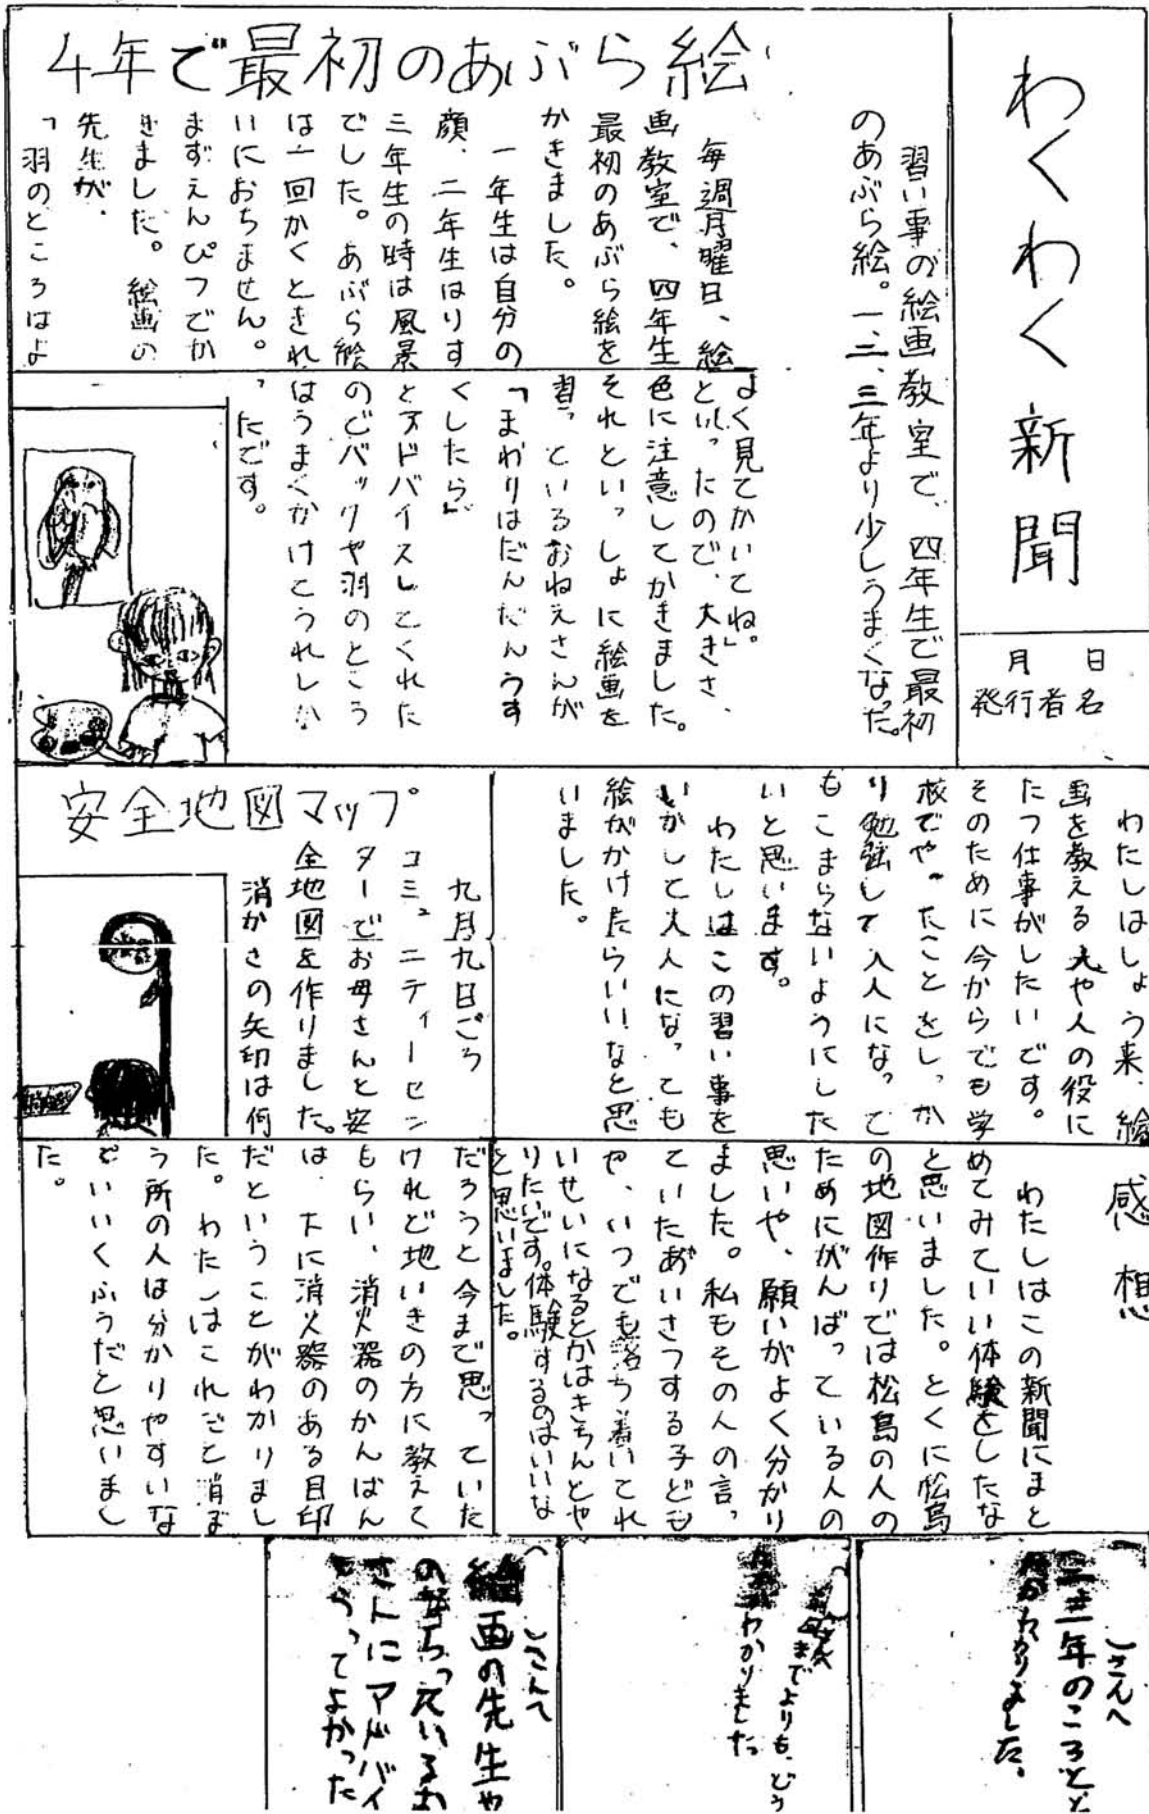 わくわく新聞
月　日
発行者名
習い事の絵画教室で、四年生で最初
のあぶら絵。一、二、三年より少しうまくなった。
4年で最初のあぶら絵
毎週月曜日、絵
画教室で、四年生
最初のあぶら絵を
かきました。
一年生は自分の
顔、二年生はりす
三年生の時は風景
でした。あぶら絵
は一回かくときれ
いにおちません。
まずえんぴつでか
きました。絵画の
先生が、
「羽のところはよ
よく見てかいてね。」
といったので、大きさ、
色に注意してかきました。
それといっしょに絵画を
習っているおねえさんが
「まわりはだんだんうす
くしたら」
とアドバイスしてくれた
のでバックや羽のところ
はうまくかけてうれしか
ったです。
わたしはしょう来、絵
画を教える人や人の役に
たつ仕事がしたいです。
そのために今からでも学
校でやったことをしっか
り勉強して大人になって
もこまらないようにした
いと思います。
わたしはこの習い事を
いかして大人になっても
絵がかけたらいいなと思
いました。
安全地図マップ
九月九日ごろ
コミュニティーセン
ターでお母さんと安
全地図を作りました。
消かきの矢印は何
だろうと今まで思っていた
けれど地いきの方に教えて
もらい、消火器のかんばん
は、下に消火器のある目印
だということがわかりまし
た。わたしはこれだと消ぼ
う所の人は分かりやすいな
といいくふうだと思いまし
た。
感想
わたしはこの新聞にまと
めてみていい体験をしたな
と思いました。とくに松島
の地図作りでは松島の人の
ためにがんばっている人の
思いや、願いがよく分かり
ました。私もその人の言っ
ていたあいさつする子ども
や、いつでも落ち着いてれ
いせいになるとかはきちんとや
りたいです。体験するのはいいな
と思いました。
さんへ
三年のころと
わかりました。
までよりも、どう
わかりました
さんへ
絵画の先生や
さんにアドバイ
もらってよかった